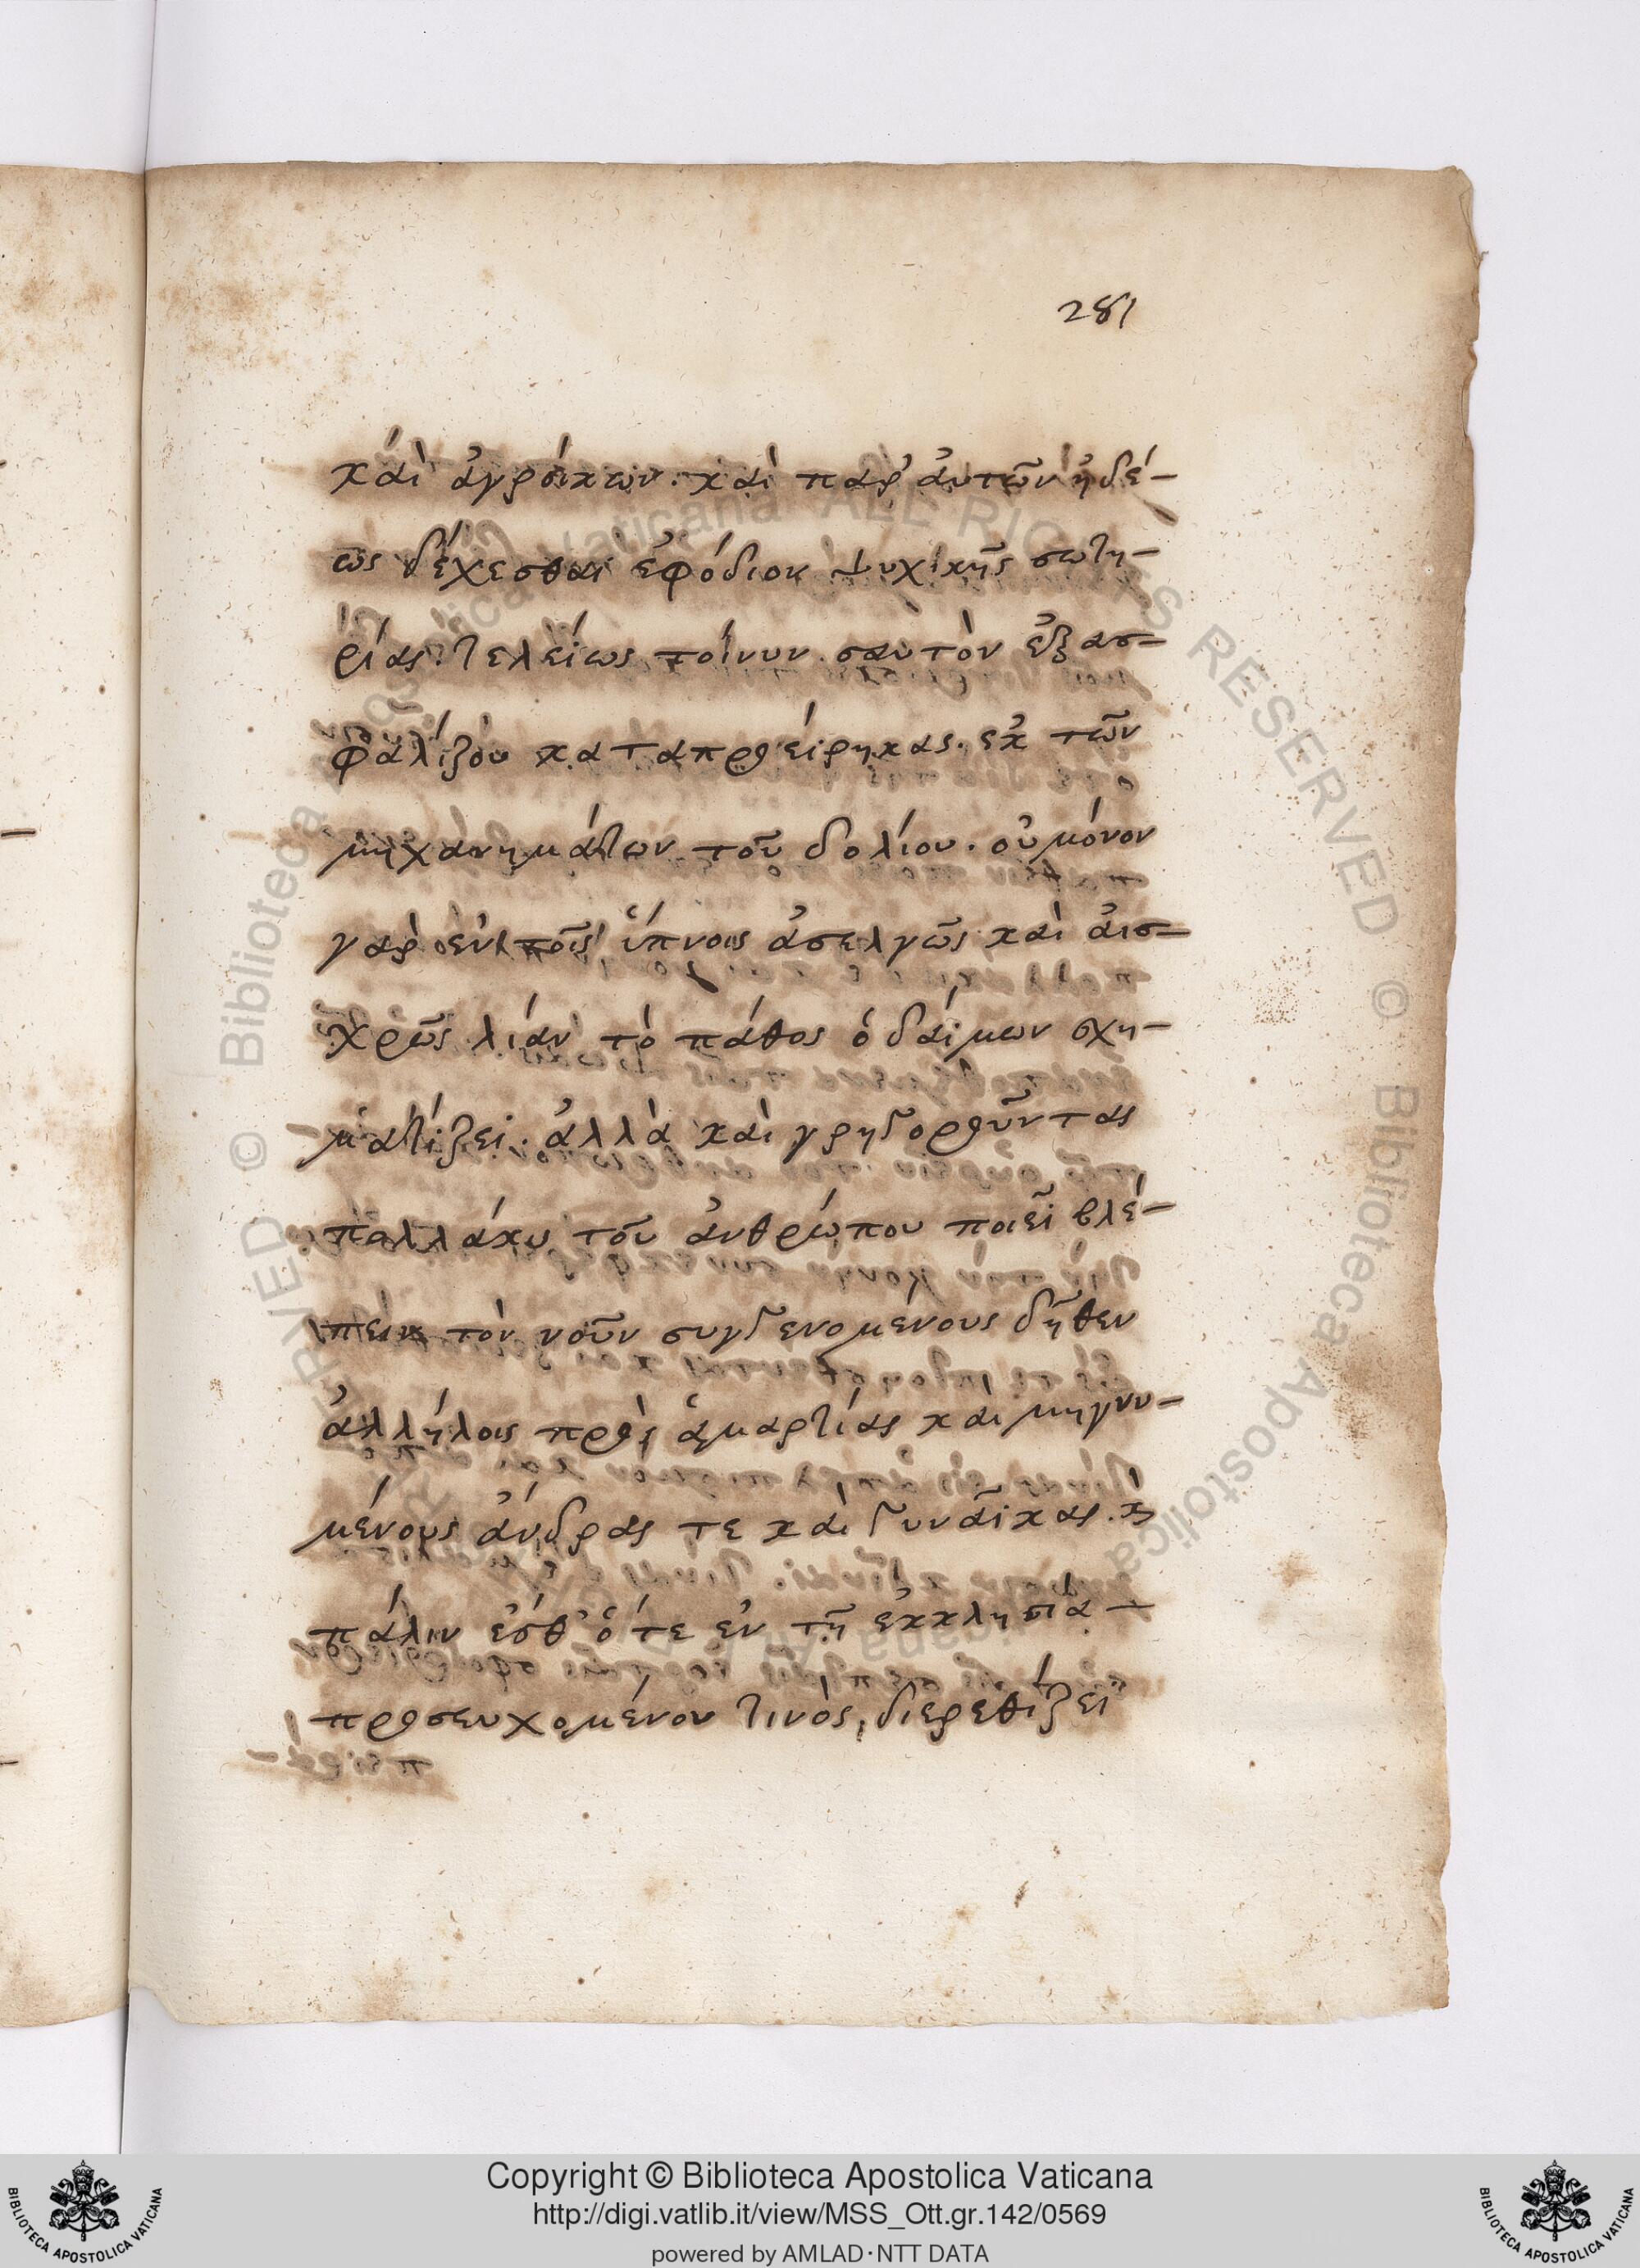 281
καὶ ἀγροίκων. καὶ παρ αὐτῶν ἡδέ-
ως δέχεσθαι ἐφόδιον ψυχικῆς σωτη-
ρίας. τελείως τοίνυν σαυτὸν ἐξασ-
φαλίζου καταπροείρηκας. ἐκ τῶν
μηχανημάτων τοῦ δολίου. οὐ μόνον
γὰρ ἐν τοῖς ὕπνοις ἀσελγῶς καὶ ἀισ-
χρῶς λίαν τὸ πάθος ὁ δαίμων σχη-
ματίζει. ἀλλὰ καὶ γρηγοροῦντας
πολλάκις τοῦ ἀνθρώπου ποιεῖ βλέ-
πειν τὸν νοῦν συγγενομένους δῆθεν
ἀλλήλοις πρὸς ἁμαρτίας καὶ μηγνυ-
μένους ἄνδρας τε καὶ γυναῖκας. κ
πάλιν ἔσθ ὅτε ἐν τῇ ἐκκλησία
προσευχομένου τινὸς, διερεθίζει
Copyright © Biblioteca Apostolica Vaticana
http://digi.vatlib.it/view/MSS_Ott.gr.142/0569
powered by AMLAD·NTT DATA
BIBLIOTECA APOSTOLICA VATICANA
BIBLIOTECA APOSTOLICA VATICANA